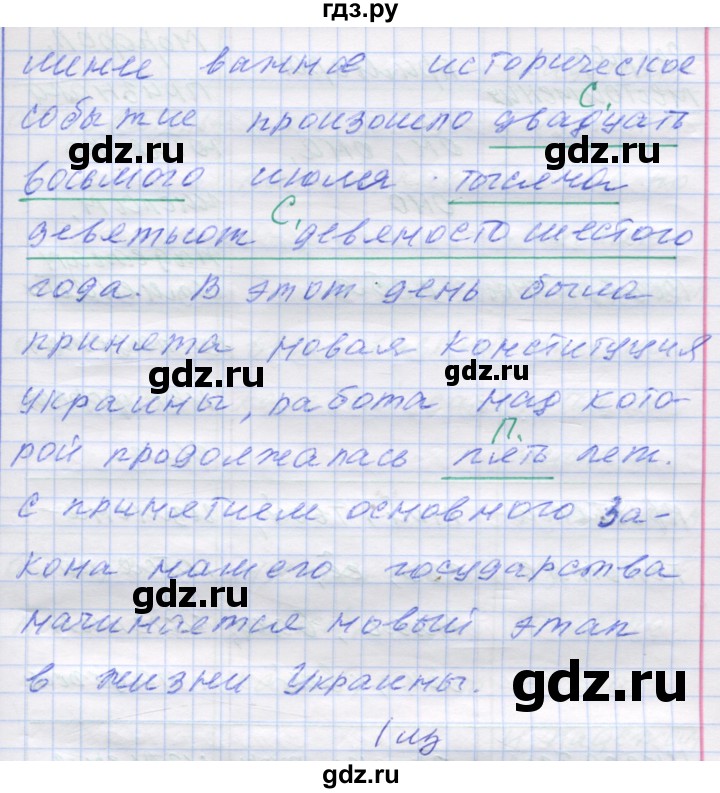 гдз.ру
шени важное историческое
С.
событие произошло двадцать
восьмого июля тысяча
С.
девятьсот девяносто шестого
года. В этот день была
принята новая конституция
Украины, работа над кото-
П.
рой продолжалась пять лет.
С принятием основного За-
кона нашего государства
начинается новый этап
в жизни Украины.
gdz.ru
gdz.ru
gdz.ru
gdz.ru
gdz.ru
gdz.ru
gdz.ru
gdz.ru
gdz.ru
gdz.ru
гдз.ру